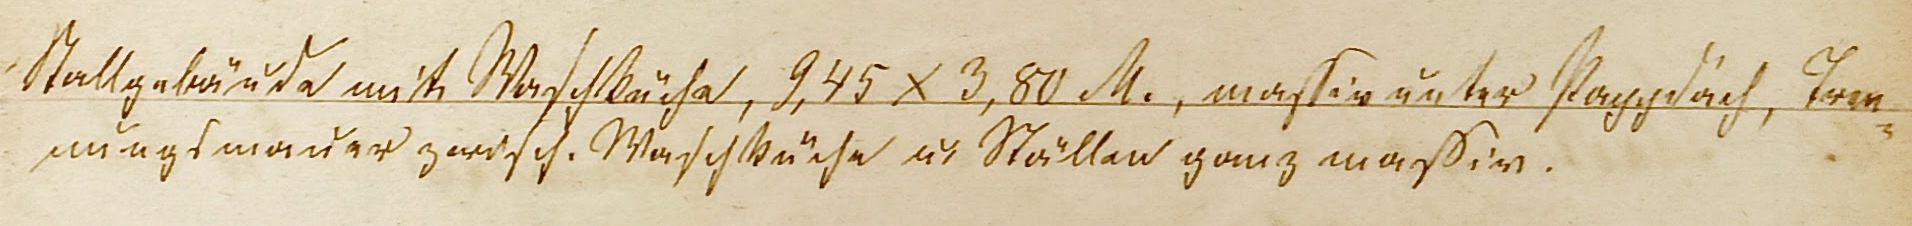 Stallgebäude mit Waschküche, 9,45 X 3,80 M., massiv unter Pappdach, Tren-
nungsmauer zwisch. Waschküche u. Ställen ganz massiv.